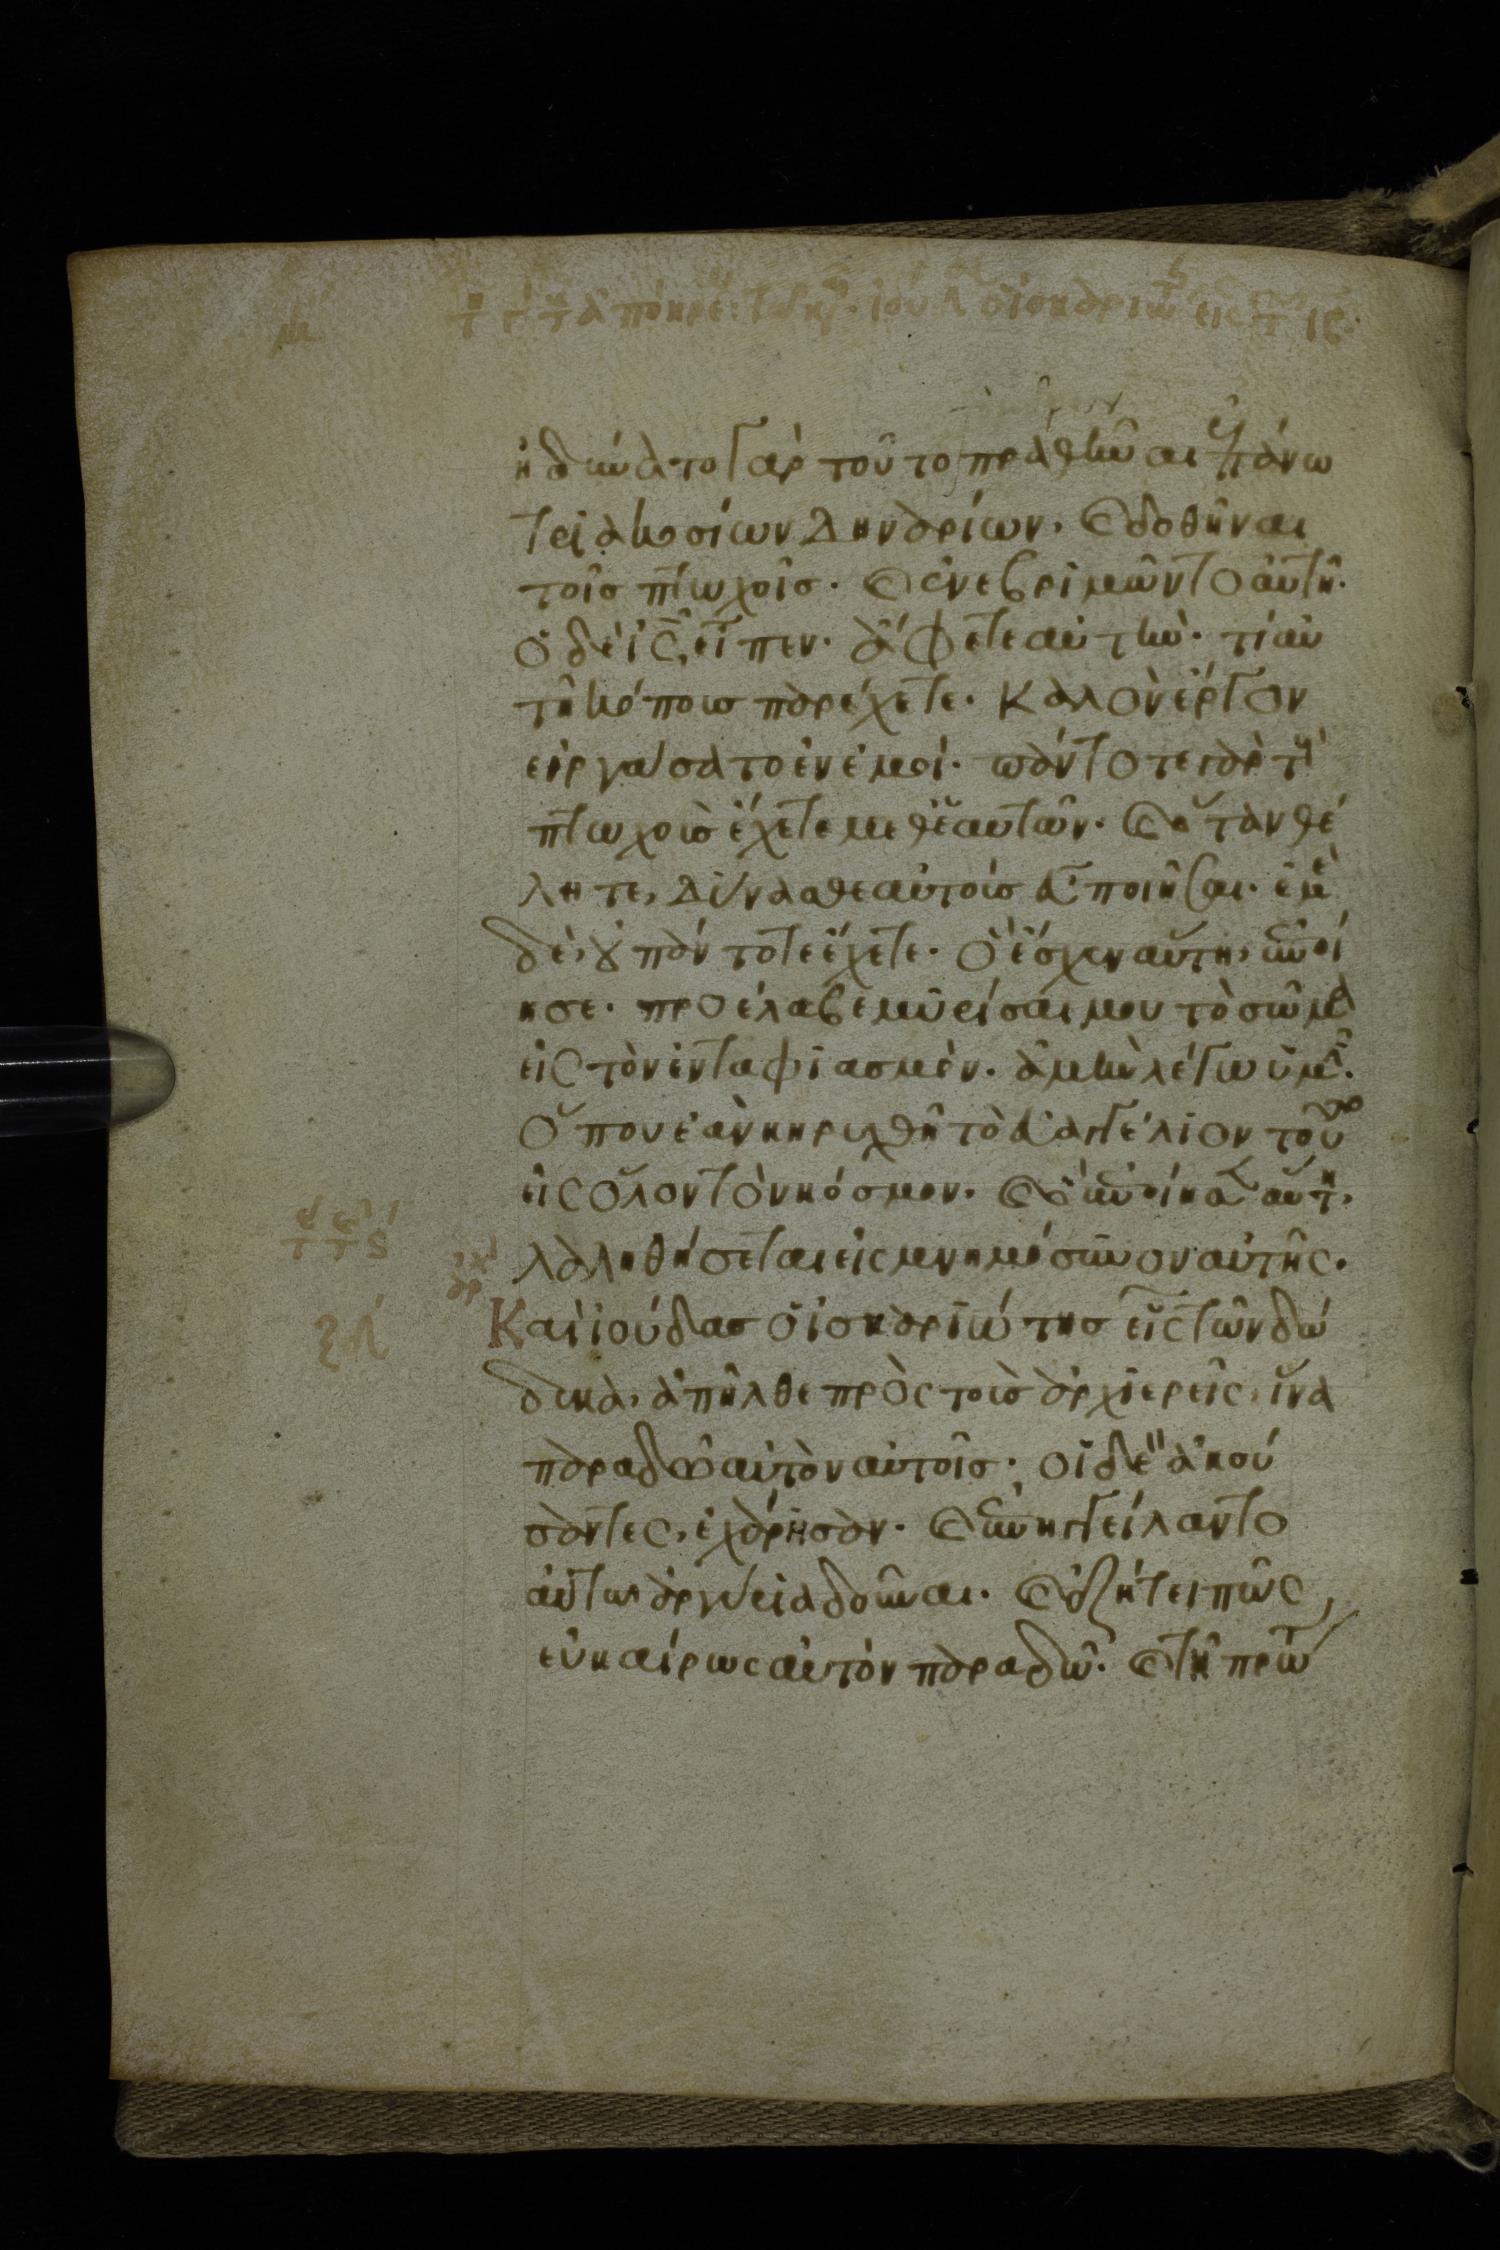 ἠδύνατο γὰρ τοῦτο πραθῆναι ἐπάνω
τριακοσίων δηναρίων. καὶ δοθῆναι
τοῖς πτωχοῖς. καὶ ἐνεβριμῶντο αὐτῆ.
ὁ δὲ ἰς, εἶπεν. ἄφετε αὐτὴν. τί αὐ
τῆ κόπους παρέχετε. καλὸν ἔργον
εἰργάσατο ἐν ἐμοί. πάντοτε γὰρ τοὺς
πτωχοὺς ἔχετε μεθ' ἑαυτῶν. καὶ ὅταν θέ
λητε, δύνασθε αὐτοὺς εὖ ποιῆσαι. ἐμὲ
δὲ, οὐ πάντοτε ἔχετε. ὃ ἔσχεν αὕτη, ἐποί
ησε. προέλαβε μυρίσαι μου τὸ σῶμα
εἰς τὸν ἐνταφιασμόν. ἀμὴν λέγω ὑμῖν.
ὅπου ἐὰν κηρυχθῆ τὸ εὐαγγέλιον τοῦτο
εἰς ὅλον τὸν κόσμον. καὶ ὃ ἐποίησεν αὕτη,
λαληθήσεται εἰς μνημόσυνον αὐτῆς.
Καὶ ἰούδας ὁ ἰσκαριώτης εἷς τῶν δώ
δεκα, ἀπῆλθε πρὸς τοὺς ἀρχιερεῖς, ἵνα
παραδῶ αὐτὸν αὐτοῖς. οἱ δὲ ἀκού
σαντες, ἐχάρησαν. καὶ ἐπηγγείλαντο
αὐτῶ ἀργύρια δοῦναι. καὶ ἐζήτει πῶς
εὐκαίρως αὐτὸν παραδῶ. καὶ τῆ πρώτ